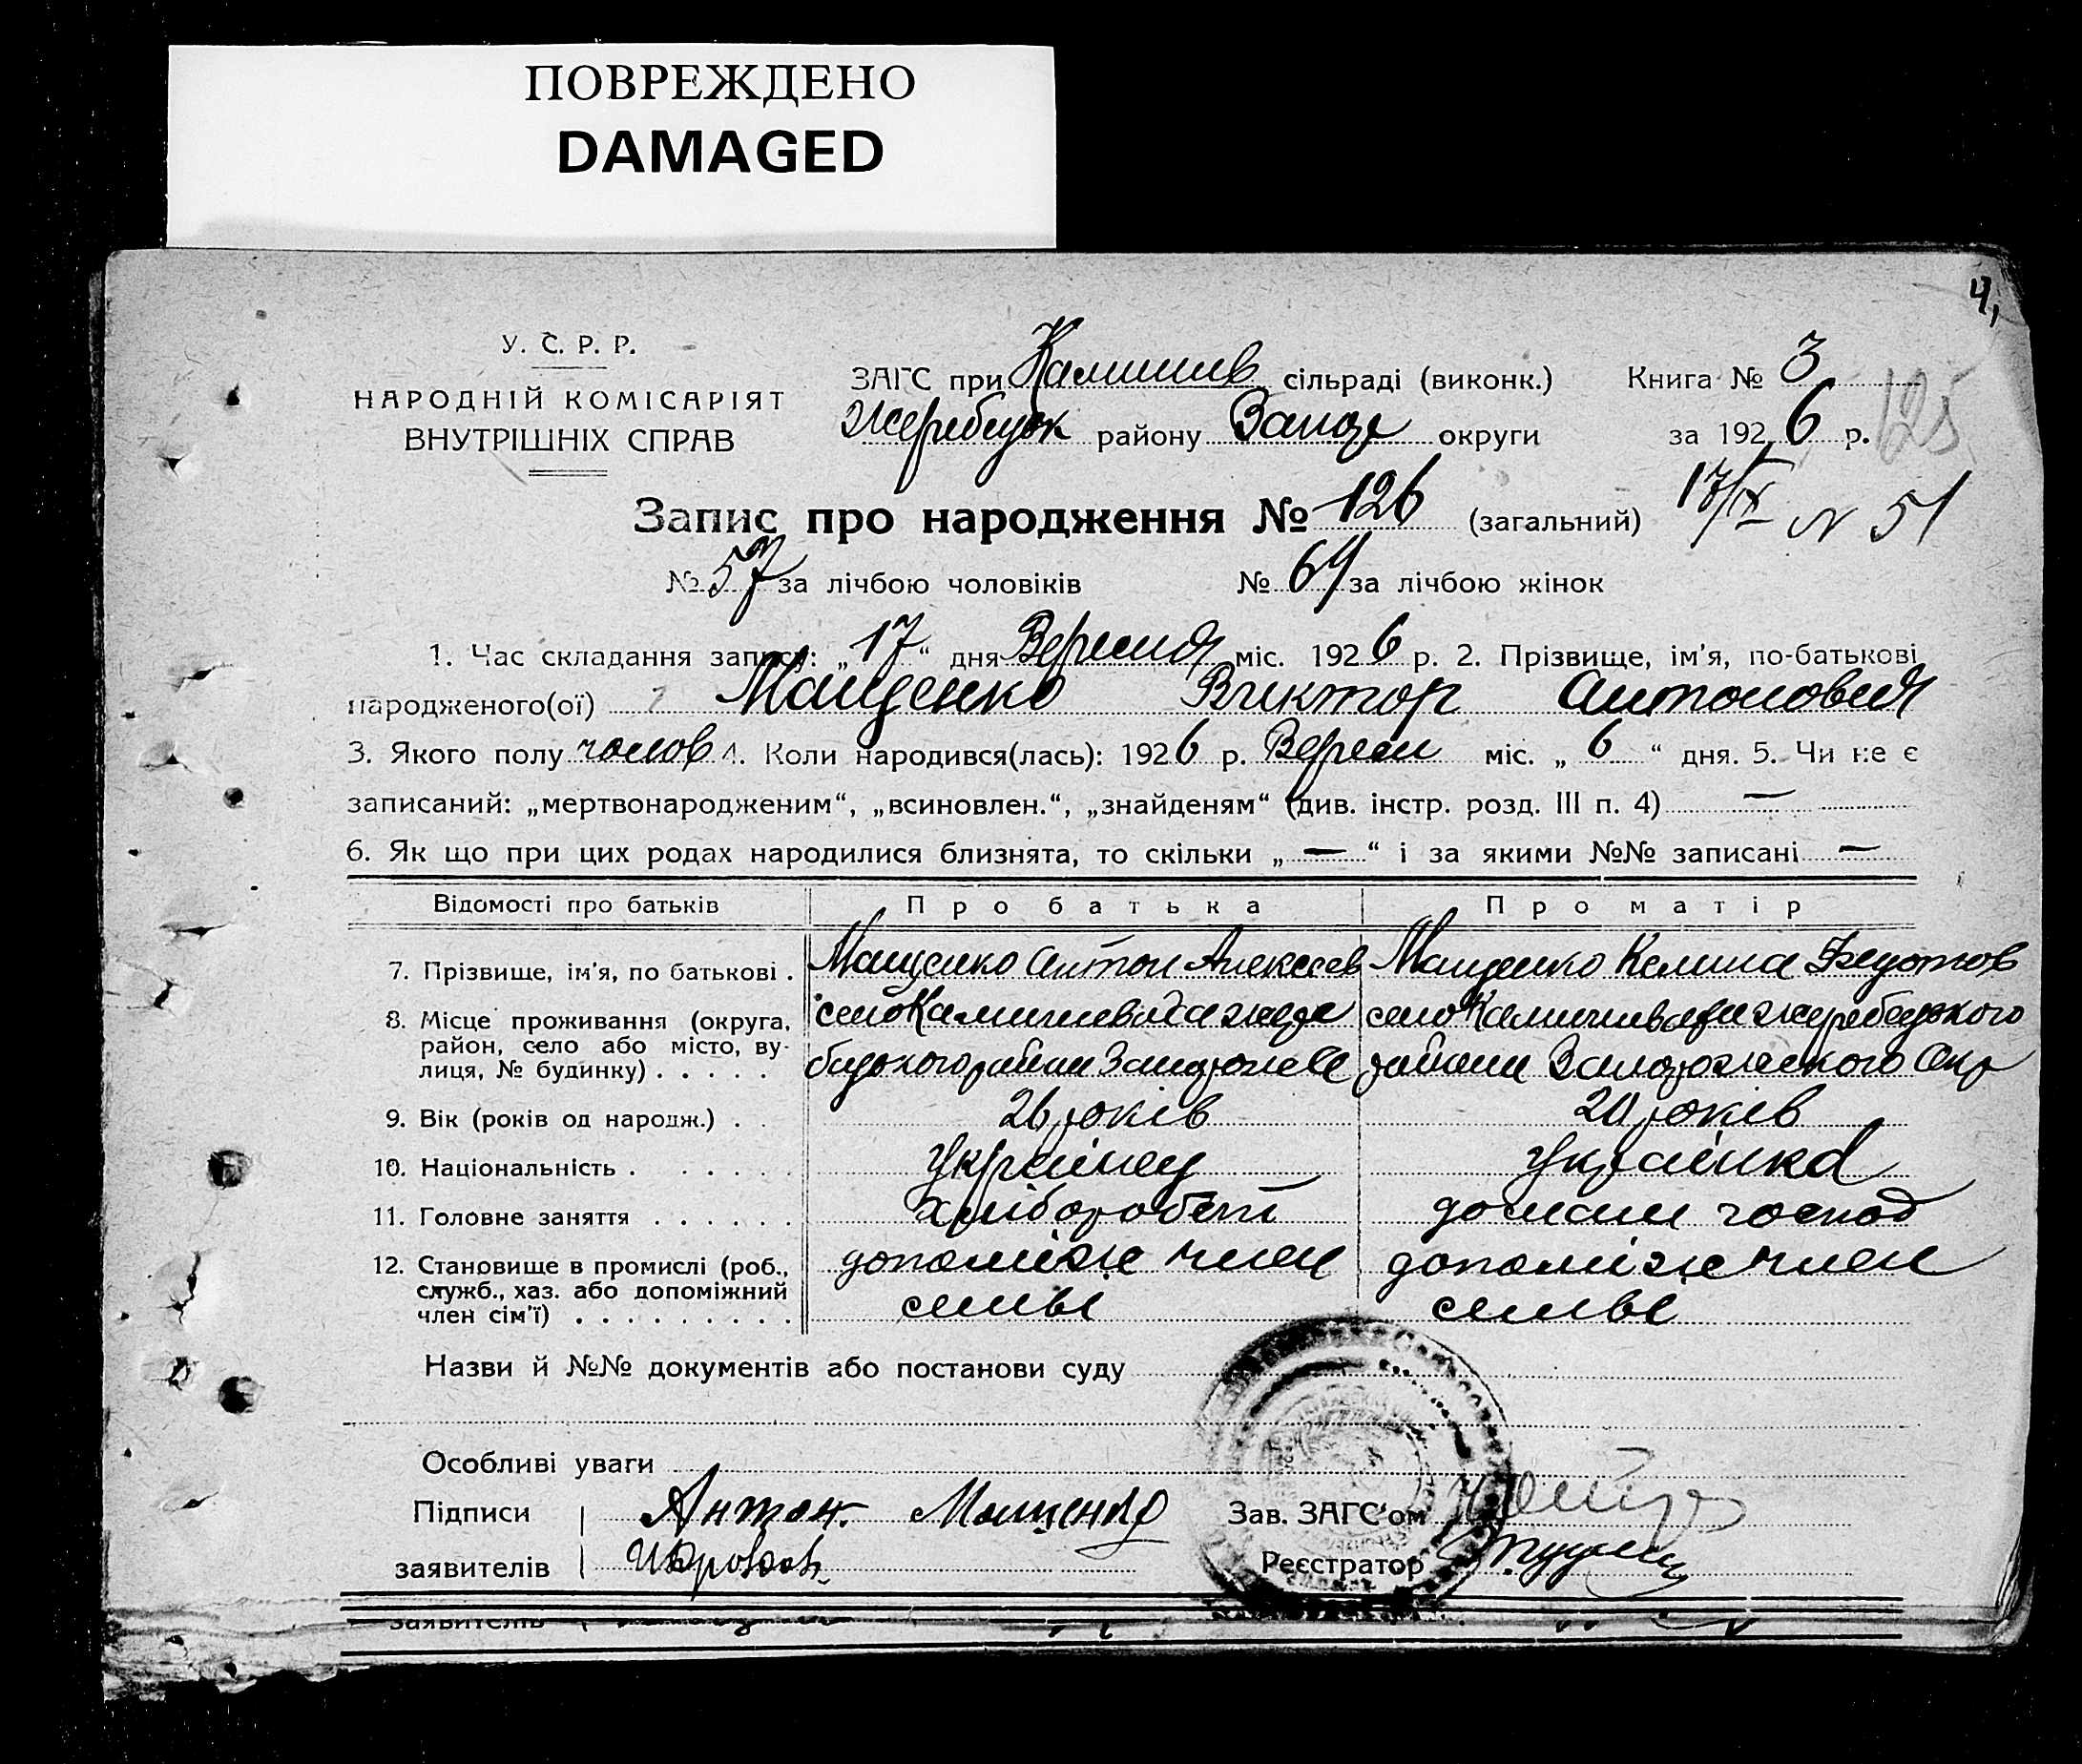 ПОВРЕЖДЕНО
DAMAGED
4,
У. С. Р. Р.
НАРОДНІЙ КОМІСАРІЯТ
ВНУТРІШНІХ СПРАВ
ЗАГС при Камишив сільраді (виконк.) Книга № 3
Жеребецьк району Запор округи за 1926 р. 125
Запис про народження № 126 (загальний) 17/IX N 51
№ 57 за лічбою чоловіків № 69 за лічбою жінок
1. Час складання запису: „17“ дня Вересня міс. 1926 р. 2. Прізвище, ім'я, по-батькові
народженого(ої) Мащенко Виктор Антонович
3. Якого полу чолов 4. Коли народився(лась): 1926 р. Вересн міс. „6“ дня. 5. Чи не є
записаний: „мертвонародженим“, „всиновлен.“, „знайденям“ (див. інстр. розд. III п. 4) —
6. Як що при цих родах народилися близнята, то скільки „—“ і за якими №№ записані —
Відомості про батьків Про батька Про матір
7. Прізвище, ім'я, по батькові . Мащенко Антон Алексеев Мащенко Федотов
8. Місце проживання (округа, район, село або місто, вулиця, № будинку) . . . . . село село Жеребецького
района Запорожского Окр
9. Вік (років од народж.) . . 26 років 20 років
10. Національність . . . . . Українец Українка
11. Головне заняття . . . . . . хлібороб домашн господ
12. Становище в промислі (роб., допоміж член допоміж член
служб., хаз. або допоміжний
член сім'ї) . . . . . . . . . семьі семьі
Назви й №№ документів або постанови суду
Особливі уваги
Підписи Антон Мащенко Зав. ЗАГС'ом
заявителів Реєстратор
заявителів